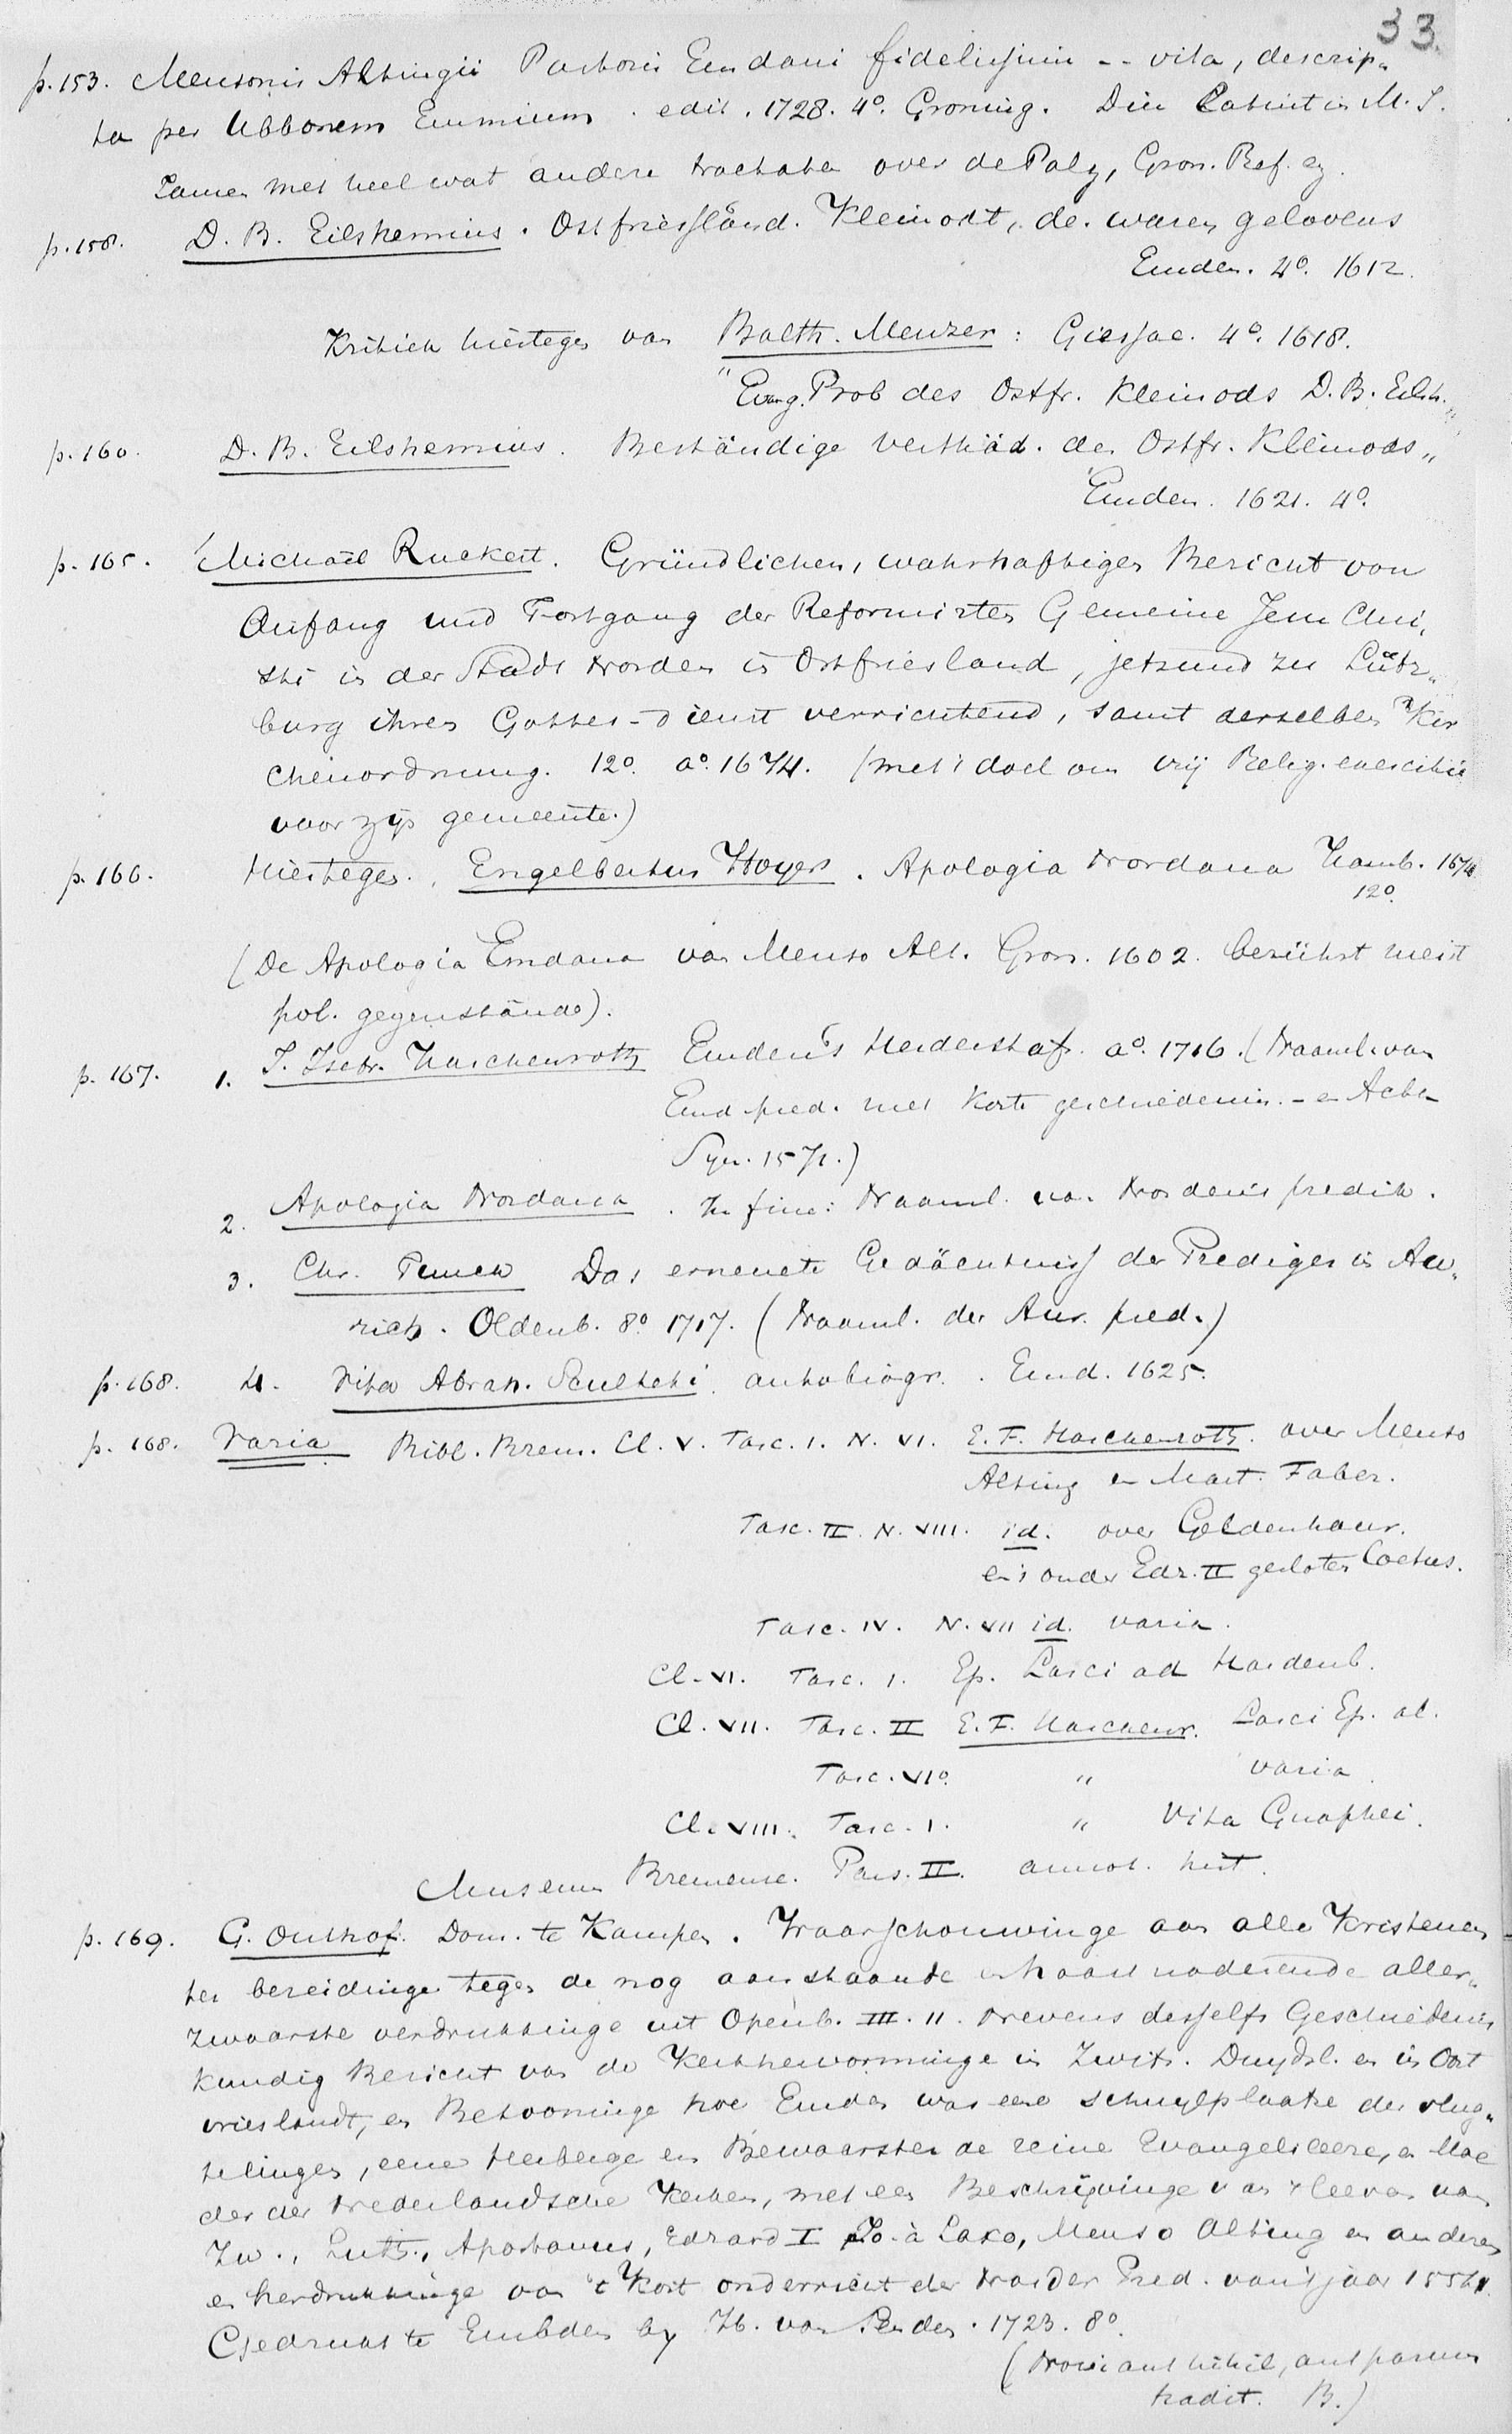 33.
p. 153. Mensonis Altingii Pastoris Emdani fidelissimi -- vita, descrip„
ta per Ubbonem Emmium. edit. 1728. 4º. Groning. Diu latuit in M.S.
Samen met heel wat andere tractaten over de Polg, Gron. Ref. ez.
p. 158. D. B. Eilshemius. Ostfriesländ. Kleinodt, de. waren gelovens
Emden. 4º. 1612.
Kritiek hiertegen van Balth. Menzer: Giessae. 4º. 1618.
"Evang. Prob des Ostfr. Kleinods D. B. Eilsh.„
p. 160. D. B. Eilshemius. Beständige Verthäd. des Ostfr. Kleinods„
Emden. 1621. 4º.
p. 165. Michaël Ruckert. Gründlichen, wahrhaftigen Bericht von
Anfang und Fortgang der Reformirten Gemeine Jesu Chri„
sti in der Stadt Norden in Ostfriesland, jetzund zu Lütz„
burg ihren Gottes-dienst verrichtend, samt derselben Kir
chenordnung. 12º. aº. 1674. (met 't doel om vrij Relig. exercitie
voor zijn gemeente.)
p. 166. Hiertegen. Engelbertus Hoyer. Apologia Nordana Hamb. 1674
12º.
(De Apologia Emdana van Menso Alt. Gron. 1602. berührt meist
pol. gegenstände).
p. 167. 1. J. Isebr. Harckenroth Emden's Herderstaf. aº. 1716. (Naaml. van
Emd pred. met korte geschiedenis. - en Acta
Syn. 1571.)
2. Apologia Nordana. In fine: Naaml. van Nordens predik.
3. Chr. Funck Das erneuete Gedächtniss der Prediger in Au„
rich. Oldenb. 8º. 1717. (Naaml. der Aur. pred.)
p. 168. 4. Vita Abrah. Sculteti. autobiogr. Emd. 1625.
p. 168. Varia Bibl. Brem. Cl. V. Fasc. 1. N. VI. E. F. Harckenroth. over Menso
Alting en Mart. Faber.
Fasc. II. N. VIII. id. over Geldenhaur.
en 't onder Edz. II gesloten Coetus.
Fasc. IV. N. VII id. varia.
Cl. VI. Fasc. 1. Ep. Lasci ad Hardenb.
Cl. VII. Fasc. II E. F. Harckenr. Lasci Ep. al.
Fasc. VIº. " varia.
Cl. VIII. Fasc. 1. " Vita Gnaphei.
Museum Bremense. Pars. II. annot. hist.
p. 169. G. Outhof. Dom. te Kampen. Waarschouwinge aan alle Kristenen
ter bereidinge tegen de nog aanstaande en haast naderende aller„
zwaarste verdrukkinge uit Openb. III. 11. Nevens desselfs Geschiedenis
kundig Bericht van de Kerkhervorminge in Zwits. Duydsl. en in Oost
vrieslandt, en Betooninge hoe Emden was eene schuylplaatse der vlug„
telingen, eene Herberge en Bewaarster de reine Evangelileere, en Moe
der der Nederlandsche Kerken, met een Beschrijvinge van 't leven van
Zw., Luth., Aportanus, Edzard I Jo. à Lasco, Menso Alting en anderen
en herdrukkinge van 't Kort onderricht der Norder Pred. van 't jaar 155
Gedrukt te Embden by Hb. van Senden. 1723. 8º.
(Novi aut nihil, aut parum
tradit. B.)